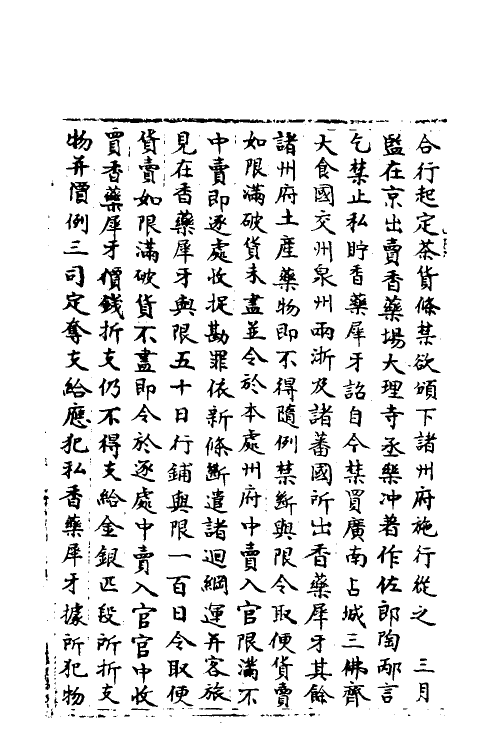 合行起定茶貨條禁欲頒下諸州府施行從之　三月
監在京出賣香藥場大理寺丞樂冲著作佐郎陶邴言
乞禁止私貯香藥犀牙詔自今禁買廣南占城三佛齊
大食國交州泉州兩浙及諸蕃國所出香藥犀牙其餘
諸州府土產藥物即不得隨例禁斷與限令取便貨賣
如限滿破貨未盡並令於本處州府中賣入官限滿不
中賣即逐處收捉勘罪依新條斷遣諸迴綱運并客旅
見在香藥犀牙與限五十日行鋪與限一百日令取便
貨賣如限滿破貨不盡即令於逐處中賣入官官中收
買香藥犀牙價錢折支仍不得支給金銀匹段所折支
物并價例三司定奪支給應犯私香藥犀牙據所犯物